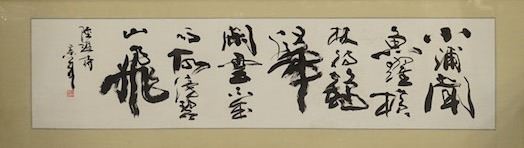 小浦聞
魚躍橫
林待鶴
歸
閑雲不成
雨故傍碧
山飛
陸遊詩